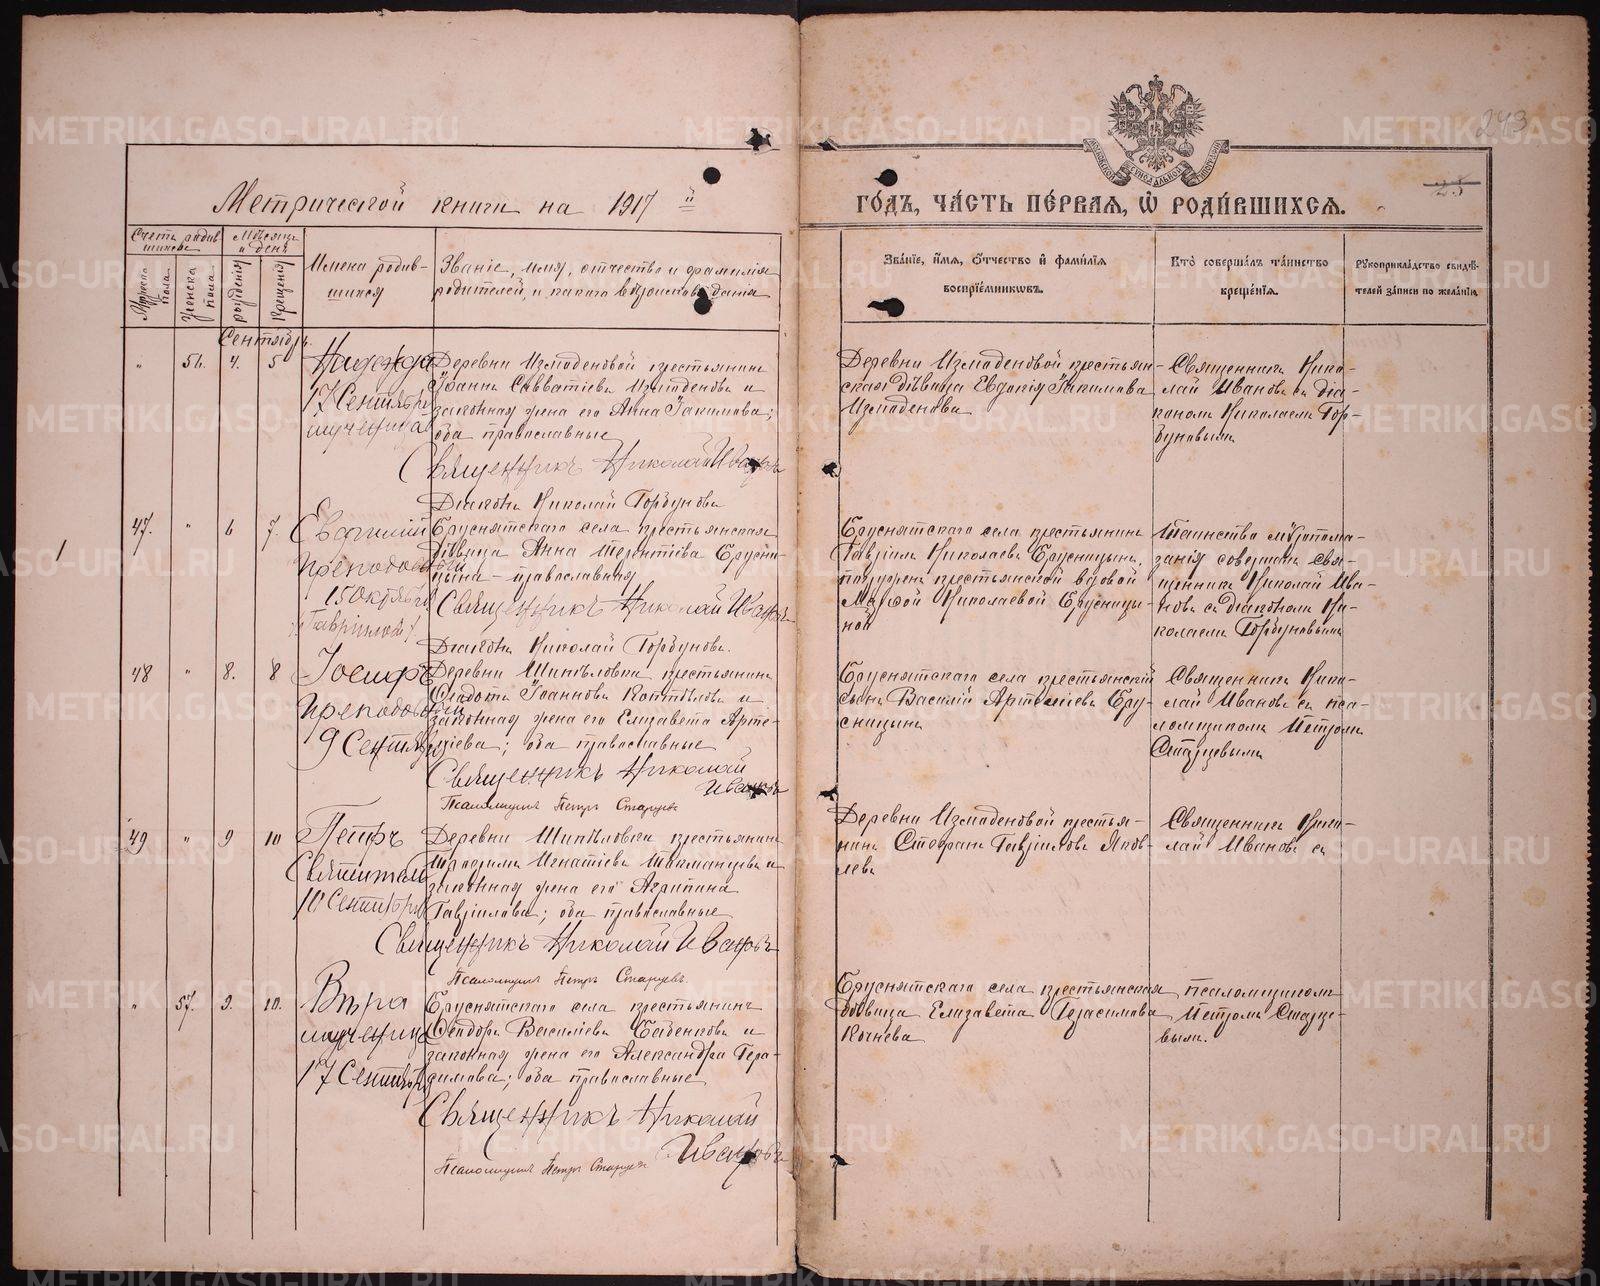 243
25
Метрической книги на 1917 й
ГОДЪ, ЧАСТЬ ПЕРВАЯ, Ѡ РОДИВШИХСЯ.
Счетъ родив
шихся
Мѣсяцъ
и день
Мужеска
пола
Женска
пола
рожденія
крещенія
Имена родив-
шихся
Званіе, имя, отчество и фамилія
родителей, и какого вѣроисповѣданія
Званіе, имя, отчество и фамилія
воспріемниковъ.
Кто совершалъ таинство
крещенія.
Рукоприкладство свидѣ-
телей записи по желанію.
Сентябрь.
" 56. 4. 5
Надежда
17 Сентября
мученица
Деревни Измоденовой крестьянинъ
Іоаннъ Савватіевъ Измоденовъ и
законная жена его Анна Іакимова;
оба православные
Священникъ Николай Ивановъ
Діаконъ Николай Горбуновъ
Деревни Измоденовой крестьян-
ская дѣвица Евдокія Іакимова
Измоденова
Священникъ Нико-
лай Ивановъ съ діа-
кономъ Николаемъ Гор-
буновымъ
47. " 6 7.
Евфимій
преподобный
15 Октября
Бруснятскаго села крестьянская
дѣвица Анна Терентіева Брусни-
цына - православная
Священникъ Николай Ивановъ
Діаконъ Николай Горбуновъ.
Бруснятскаго села крестьянинъ
Гавріилъ Николаевъ Брусницынъ,
крестьянской вдовой
Марѳой Николаевой Брусницы-
ной
Таинство мѵропома-
занія совершилъ свя-
щенникъ Николай Ива-
новъ съ діакономъ Ни-
колаемъ Горбуновымъ
1
48 " 8. 8
Іосифъ
преподобный
9 Сентября
Деревни Шипѣловки крестьянинъ
Ѳедотъ Іоанновъ Коптѣловъ и
законная жена его Елизавета Арте-
міева; оба православные
Священникъ Николай
Ивановъ
Псаломщикъ Петръ Старцевъ
Бруснятскаго села крестьянскій
сынъ Василій Артеміевъ Бру-
сницынъ
Священникъ Нико-
лай Ивановъ съ пса-
ломщикомъ Петромъ
Старцевымъ
49 " 9 10
Петръ
Святитель
10 Сентября
Деревни Шипѣловки крестьянинъ
Игнатіевъ Токманцевъ и
законная жена его Агрипина
Гавріилова; оба православные
Священникъ Николай Ивановъ
Псаломщикъ Петръ Старцевъ.
Деревни Измоденовой крестья-
нинъ Стефанъ Гавріиловъ Яков-
левъ
Священникъ Нико-
лай Ивановъ съ
" 57. 9. 10.
Вѣра
мученица
17 Сентября
Бруснятскаго села крестьянинъ
Ѳеодоръ Василіевъ Бабенковъ и
законная жена его Александра Гера-
симова; оба православные
Священникъ Николай
Ивановъ
Псаломщикъ Петръ Старцевъ
Бруснятскаго села крестьянская
дѣвица Елизавета Герасимова
Кочнева
псаломщикомъ
Петромъ Старце-
вымъ.
METRIKI.GASO-URAL.RU